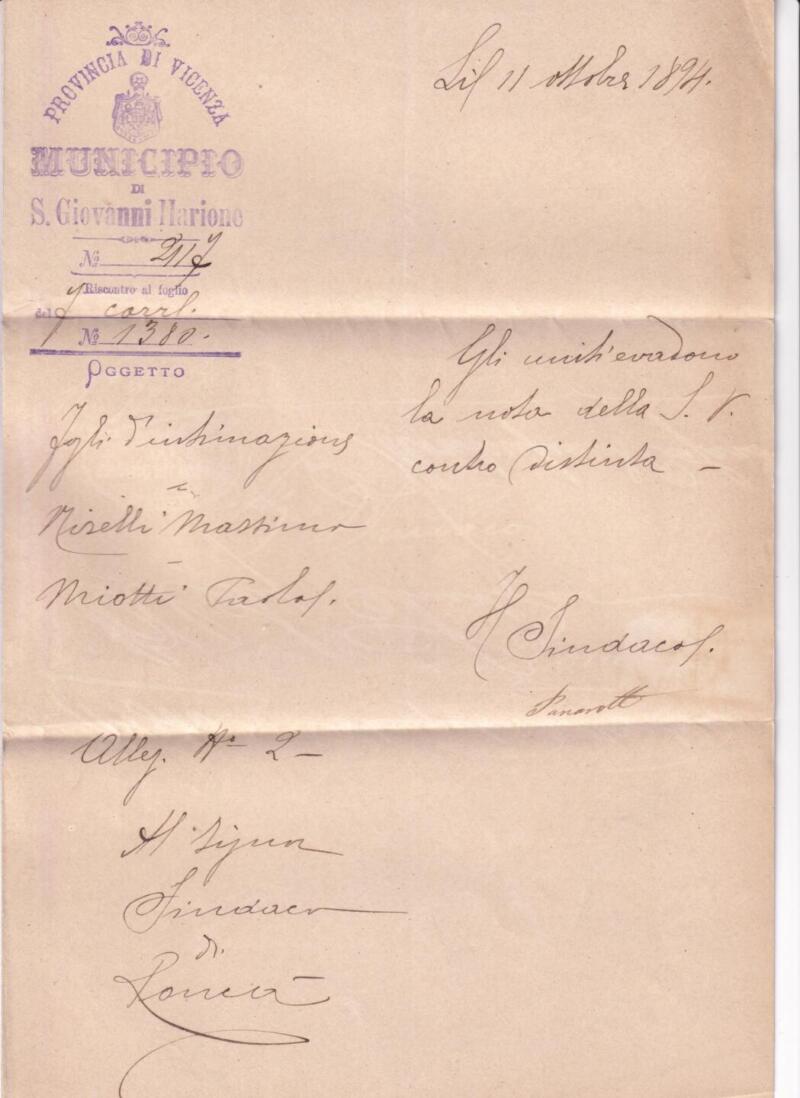 PROVINCIA DI VICENZA
MUNICIPIO
DI
S. Giovanni Ilarione
№ 2117
Riscontro al foglio
del 7 corr.
№ 1380.
OGGETTO
Li 11 ottobre 1894.
Fogli d'intimazione
Miotti Paolo
Gli uniti evadono
la nota della S. V.
contro distinta —
Il Sindaco
Panarotto
Alleg. N° 2 —
Al Signor
Sindaco
di
Roncà